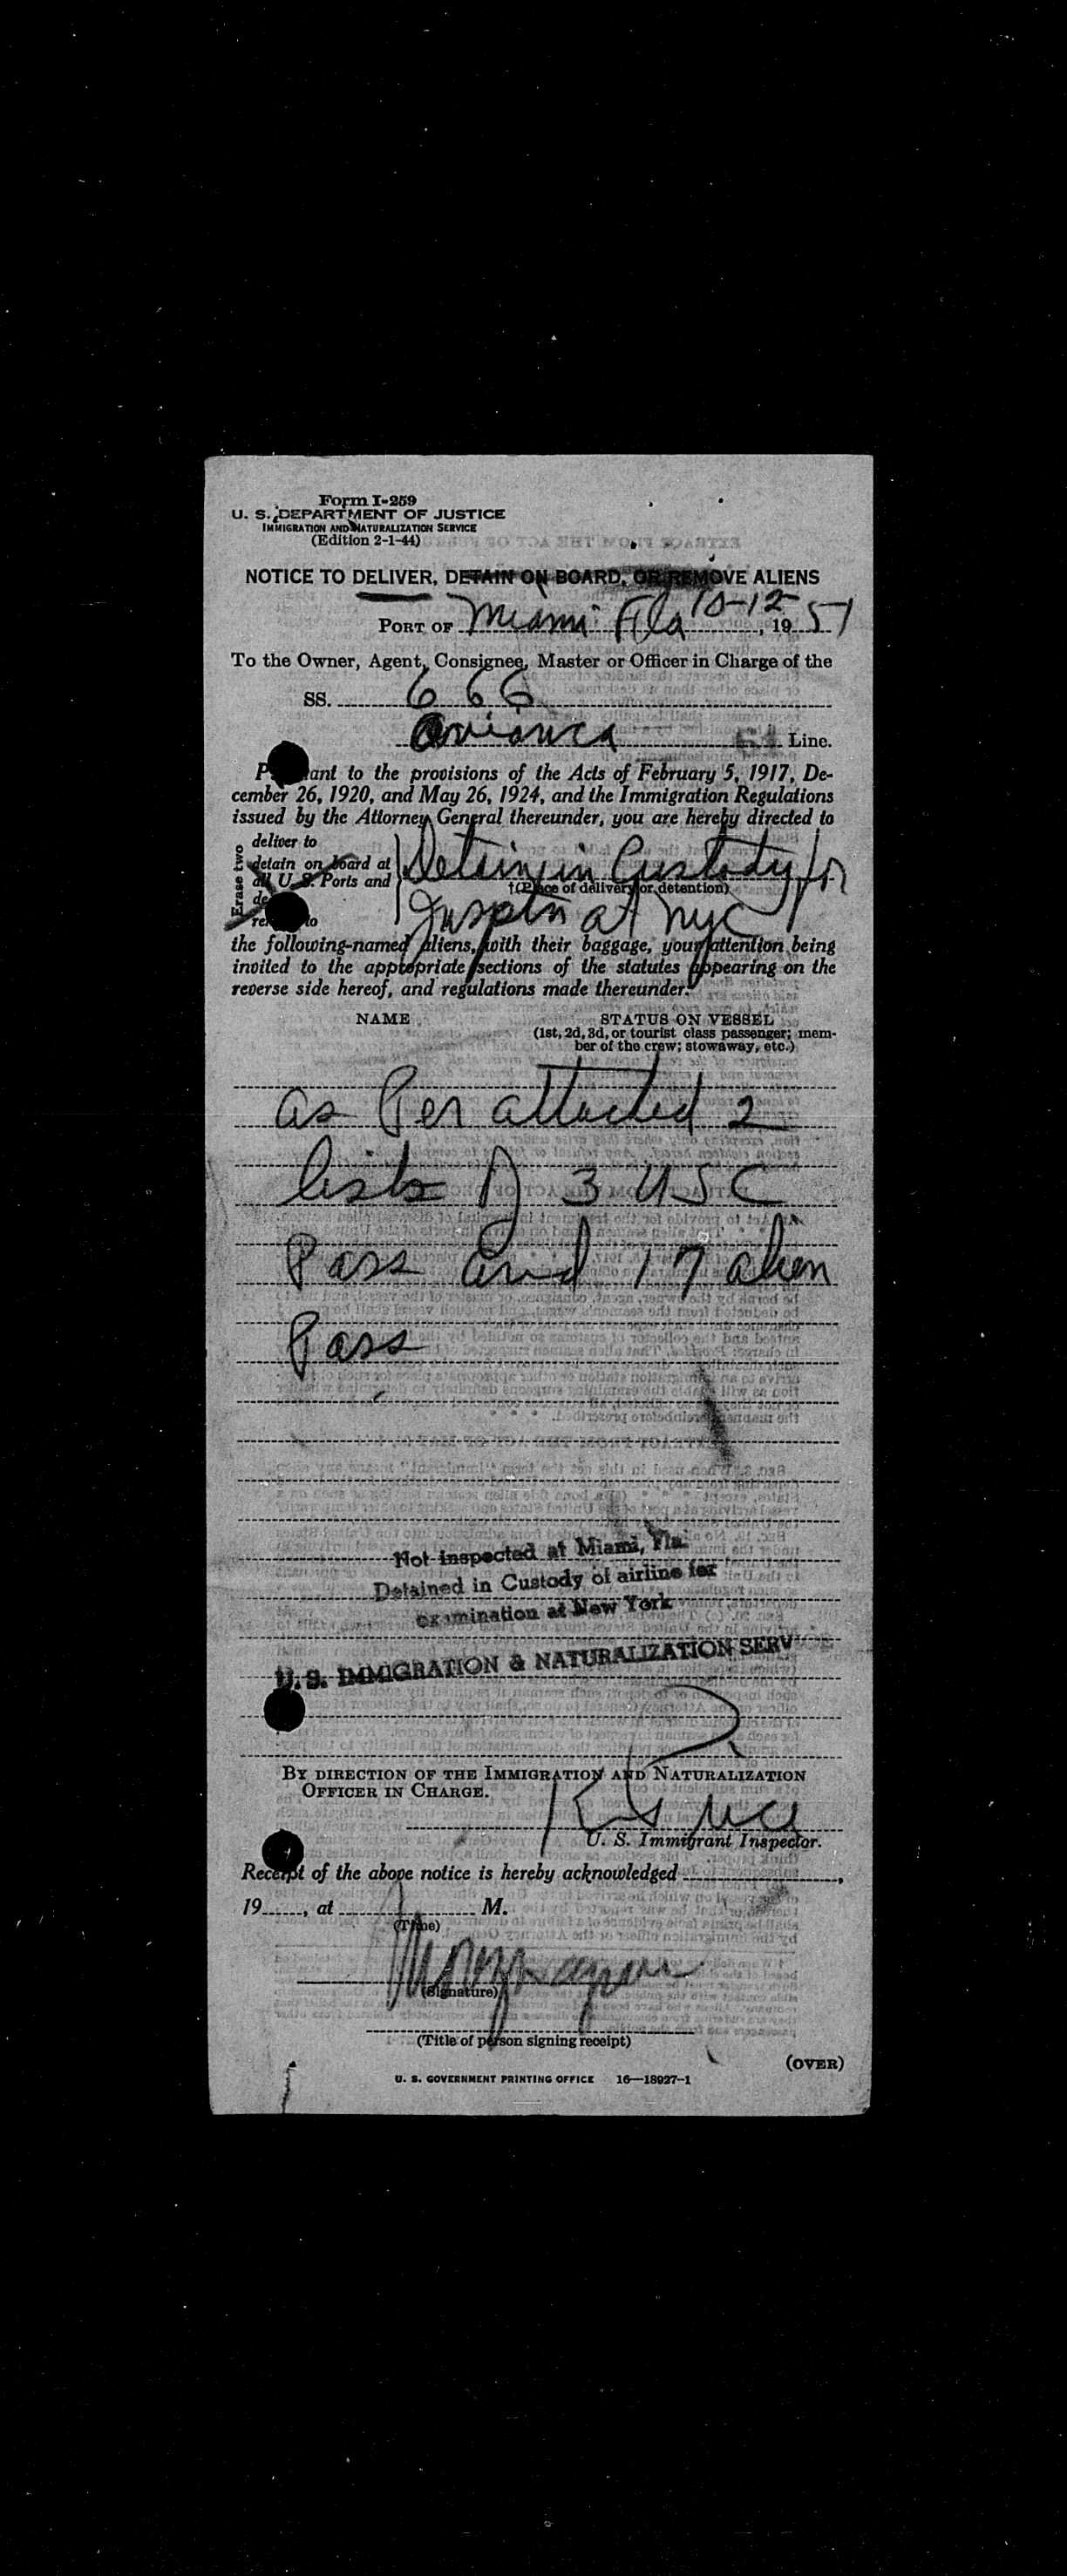 Form I-259
U. S. DEPARTMENT OF JUSTICE
IMMIGRATION AND NATURALIZATION SERVICE
(Edition 2-1-44)
NOTICE TO DELIVER, DETAIN ON BOARD, OR REMOVE ALIENS
PORT OF Miami Fla 10-12, 1951
To the Owner, Agent, Consignee, Master or Officer in Charge of the
SS. 666
Avianca Line.
P ant to the provisions of the Acts of February 5, 1917, De-
cember 26, 1920, and May 26, 1924, and the Immigration Regulations
issued by the Attorney General thereunder, you are hereby directed to
Erase two
deliver to
detain on board at
all U. S. Ports and
de
re to
Detain in Custody for
†(Place of delivery or detention)
Insptn at nyc
the following-named aliens, with their baggage, your attention being
invited to the appropriate sections of the statutes appearing on the
reverse side hereof, and regulations made thereunder.
NAME STATUS ON VESSEL
(1st, 2d, 3d, or tourist class passenger; mem-
ber of the crew; stowaway, etc.)
as Per attached 2
lists of 3 USC
Pass and 17 alien
Pass
Not inspected at Miami, Fla.
Detained in Custody of airline for
examination at New York
U. S. IMMIGRATION & NATURALIZATION SERV
BY DIRECTION OF THE IMMIGRATION AND NATURALIZATION
OFFICER IN CHARGE.
U. S. Immigrant Inspector.
Receipt of the above notice is hereby acknowledged ,
19 , at M.
(Time)
(Signature)
(Title of person signing receipt)
(OVER)
U. S. GOVERNMENT PRINTING OFFICE 16—18927-1